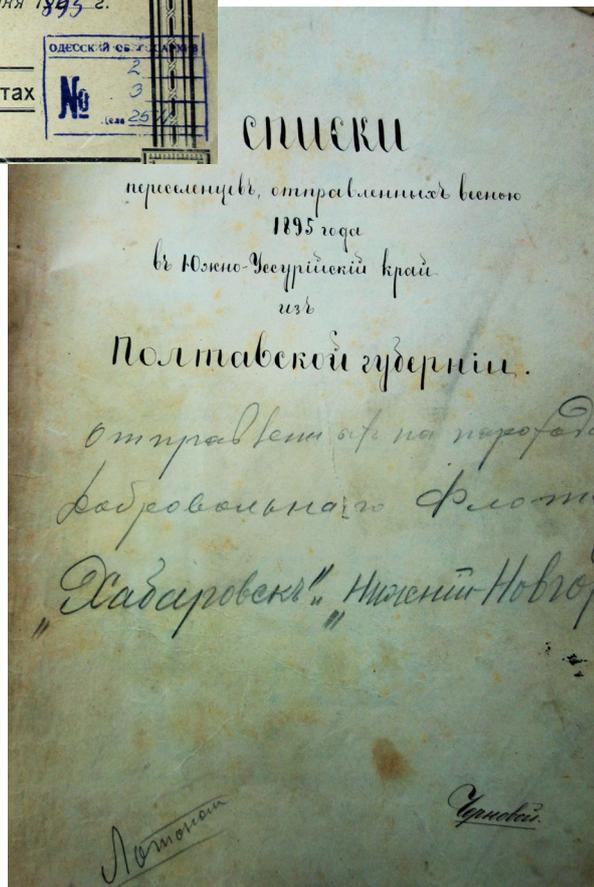 1895 г.
ОДЕССКИЙ ОБЛГОСАРХИВ
тах
№
2
3
дела
СПИСКИ
переселенцевъ, отправленныхъ весною
1895 года
въ Южно-Уссурійскій край
изъ
Полтавской губерніи.
отправленныхъ на пароход
Добровольнаго Флот
"Хабаровскъ" "Нижній-Новгор
Черновой.